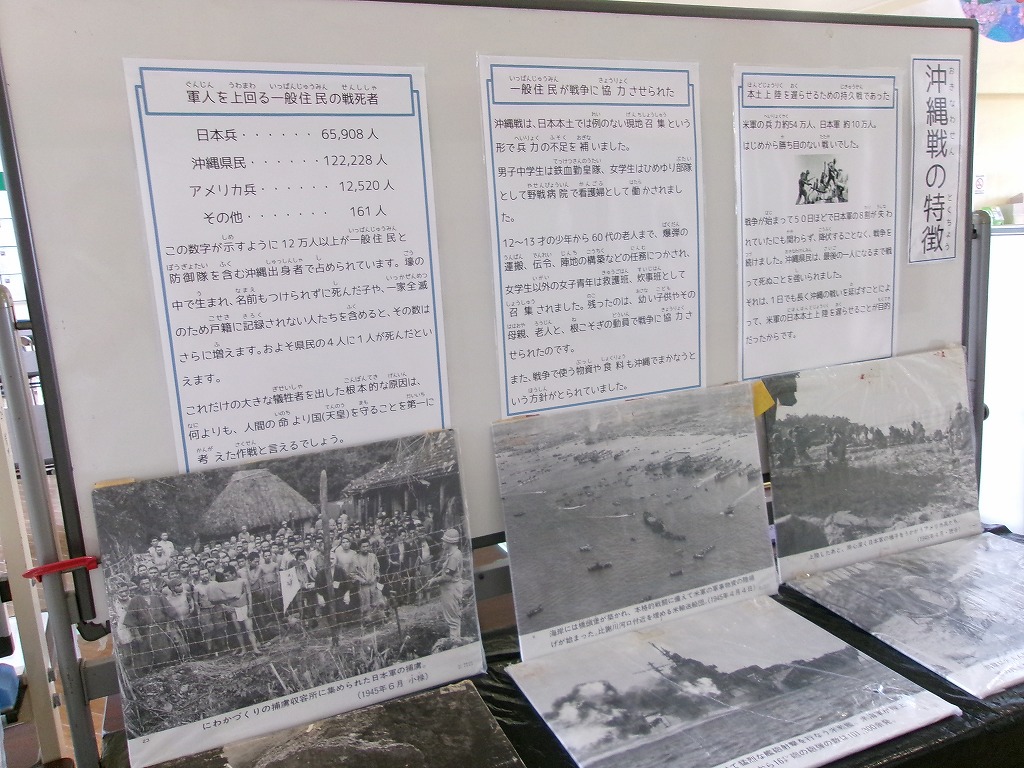 沖縄戦の特徴
おきなわせん とくちょう
本土上陸を遅らせるための持久戦であった
米軍の兵力約54万人、日本軍 約10万人。
はじめから勝ち目のない戦いでした。
戦争が始まって50日ほどで日本軍の8割が失わ
れていたにも関わらず、降伏することなく、戦争を
続けました。沖縄県民は、最後の一人になるまで戦
って死ぬことを強いられました。
それは、1日でも長く沖縄の戦いを延ばすことによ
って、米軍の日本本土上陸を遅らせることが目的
だったからです。
一般住民が戦争に協力させられた
沖縄戦は、日本本土では例のない現地召集という
形で兵力の不足を補いました。
男子中学生は鉄血勤皇隊、女学生はひめゆり部隊
として野戦病院で看護婦として働かされまし
た。
12～13才の少年から60代の老人まで、爆弾の
運搬、伝令、陣地の構築などの任務につかされ、
女学生以外の女子青年は救護班、炊事班として
召集されました。残ったのは、幼い子供やその
母親、老人と、根こそぎの動員で戦争に協力さ
せられたのです。
また、戦争で使う物資や食料も沖縄でまかなうと
いう方針がとられていました。
軍人を上回る一般住民の戦死者
ぐんじん うわまわ いっぱんじゅうみん せんししゃ
日本兵・・・・・・ 65,908人
沖縄県民・・・・・・122,228人
アメリカ兵・・・・・ 12,520人
その他・・・・・・・ 161人
この数字が示すように12万人以上が一般住民と
防御隊を含む沖縄出身者で占められています。壕の
中で生まれ、名前もつけられずに死んだ子や、一家全滅
のため戸籍に記録されない人たちを含めると、その数は
さらに増えます。およそ県民の4人に1人が死んだとい
えます。
これだけの大きな犠牲者を出した根本的な原因は、
何よりも、人間の命より国(天皇)を守ることを第一に
考えた作戦と言えるでしょう。
にわかづくりの捕虜収容所に集められた日本軍の捕虜。
(1945年6月 小禄)
23
海岸には橋頭堡が築かれ、本格的戦闘に備えて米軍の軍事物資の陸揚
げが始まった。比謝川河口付近を埋める米輸送船団。(1945年4月4日)